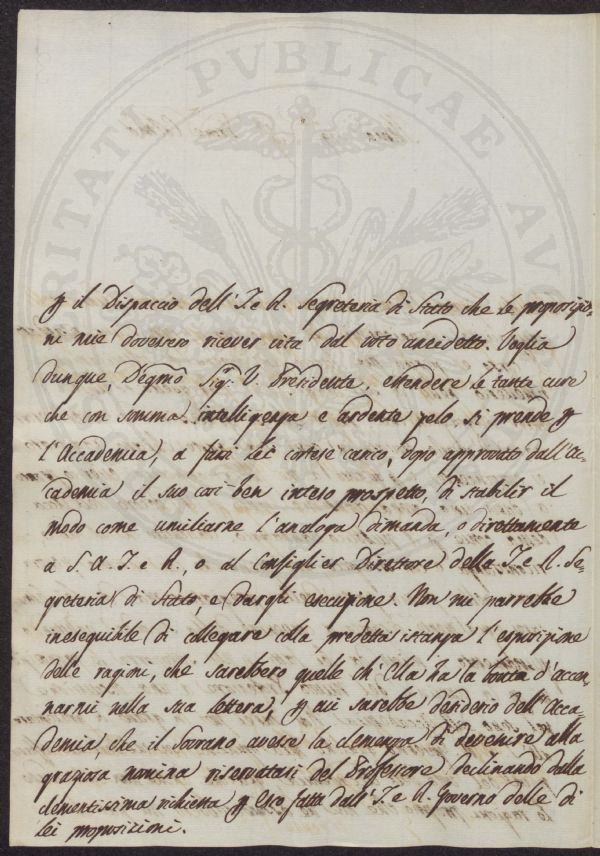 PVBLICAE
p il Dispaccio dell' I. e R. Segreteria di Stato che le proposizio-
ni mie dovessero ricever vita dal voto anzidetto. Voglia
dunque, Degmo Sigr. V. Presidente, estendere le tante cure
che con somma intelligenza e ardente zelo si prende p
l'Accademia, a farsi cortese carico, dopo approvato dall'Ac-
cademia il suo così ben inteso prospetto, di stabilir il
modo come umiliarne l'analoga dimanda, o direttamente
a S. A. I. e R., o al Consiglier Direttore della I. e R. Se-
greteria di Stato, e dargli esecuzione. Non mi parrebbe
ineseguibile di collegare colla predetta istanza l'esposizione
delle ragioni, che sarebbero quelle ch'Ella ha la bontà d'accen-
narmi nella sua lettera, p cui sarebbe desiderio dell'Acca
demia, che il Sovrano avesse la clemenza di devenire alla
graziosa nomina riservatasi del Professore declinando dalla
clementissima richiesta p Esso fatta dall'I. e R. Governo delle di
lei proposizioni.